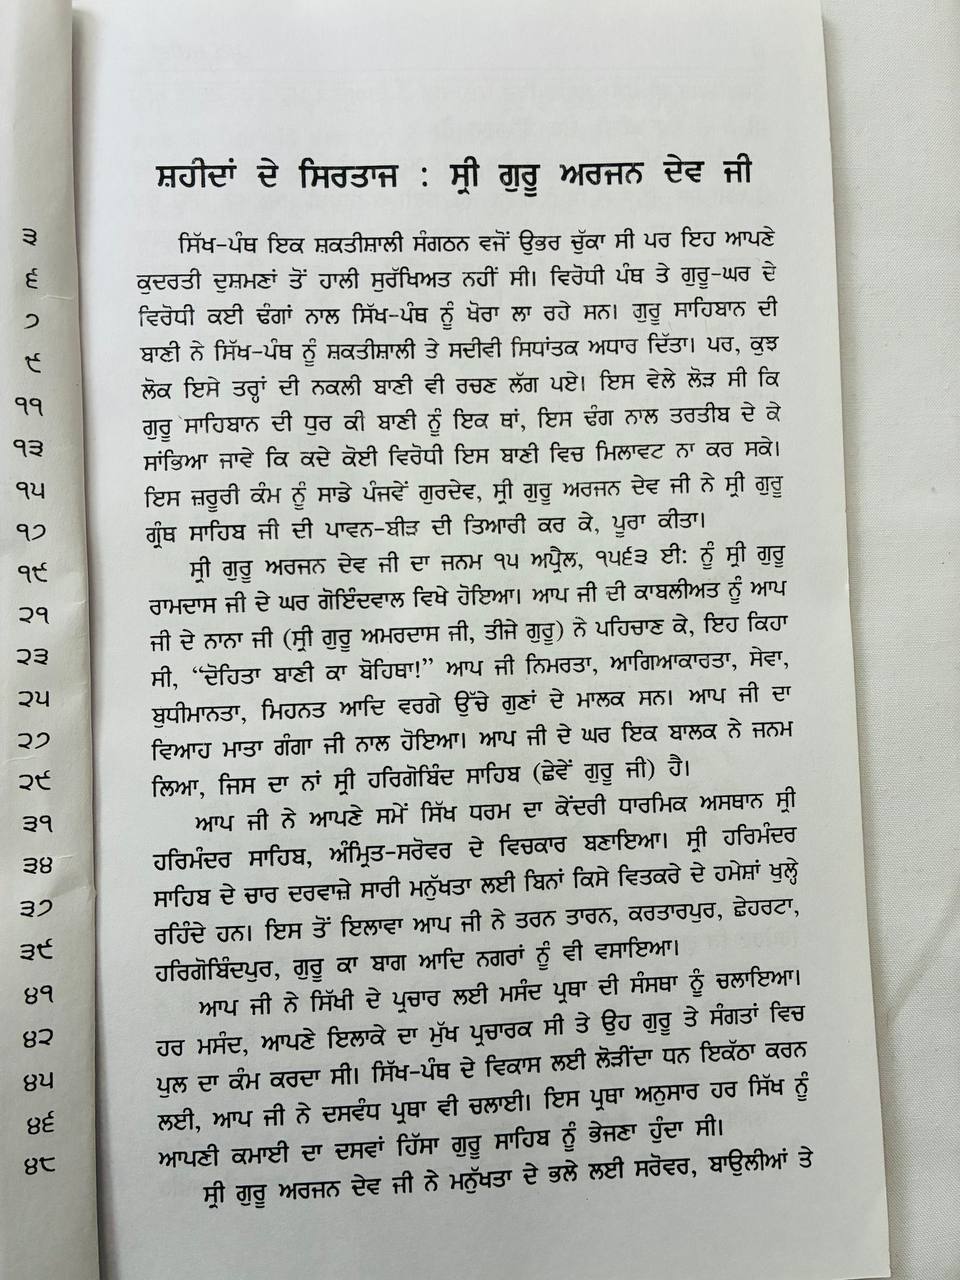 ੩
੬
੭
੯
੧੧
੧੩
੧੫
੧੭
੧੯
੨੧
੨੩
੨੫
੨੭
੨੯
੩੧
੩੪
੩੭
੩੯
੪੧
੪੨
੪੫
੪੬
੪੮
ਸ਼ਹੀਦਾਂ ਦੇ ਸਿਰਤਾਜ : ਸ੍ਰੀ ਗੁਰੂ ਅਰਜਨ ਦੇਵ ਜੀ
ਸਿੱਖ-ਪੰਥ ਇਕ ਸ਼ਕਤੀਸ਼ਾਲੀ ਸੰਗਠਨ ਵਜੋਂ ਉਭਰ ਚੁੱਕਾ ਸੀ ਪਰ ਇਹ ਆਪਣੇ
ਕੁਦਰਤੀ ਦੁਸ਼ਮਣਾਂ ਤੋਂ ਹਾਲੀ ਸੁਰੱਖਿਅਤ ਨਹੀਂ ਸੀ। ਵਿਰੋਧੀ ਪੰਥ ਤੇ ਗੁਰੂ-ਘਰ ਦੇ
ਵਿਰੋਧੀ ਕਈ ਢੰਗਾਂ ਨਾਲ ਸਿੱਖ-ਪੰਥ ਨੂੰ ਖੋਰਾ ਲਾ ਰਹੇ ਸਨ। ਗੁਰੂ ਸਾਹਿਬਾਨ ਦੀ
ਬਾਣੀ ਨੇ ਸਿੱਖ-ਪੰਥ ਨੂੰ ਸ਼ਕਤੀਸ਼ਾਲੀ ਤੇ ਸਦੀਵੀ ਸਿਧਾਂਤਕ ਅਧਾਰ ਦਿੱਤਾ। ਪਰ, ਕੁਝ
ਲੋਕ ਇਸੇ ਤਰ੍ਹਾਂ ਦੀ ਨਕਲੀ ਬਾਣੀ ਵੀ ਰਚਣ ਲੱਗ ਪਏ। ਇਸ ਵੇਲੇ ਲੋੜ ਸੀ ਕਿ
ਗੁਰੂ ਸਾਹਿਬਾਨ ਦੀ ਧੁਰ ਕੀ ਬਾਣੀ ਨੂੰ ਇਕ ਥਾਂ, ਇਸ ਢੰਗ ਨਾਲ ਤਰਤੀਬ ਦੇ ਕੇ
ਸਾਂਭਿਆ ਜਾਵੇ ਕਿ ਕਦੇ ਕੋਈ ਵਿਰੋਧੀ ਇਸ ਬਾਣੀ ਵਿਚ ਮਿਲਾਵਟ ਨਾ ਕਰ ਸਕੇ।
ਇਸ ਜ਼ਰੂਰੀ ਕੰਮ ਨੂੰ ਸਾਡੇ ਪੰਜਵੇਂ ਗੁਰਦੇਵ, ਸ੍ਰੀ ਗੁਰੂ ਅਰਜਨ ਦੇਵ ਜੀ ਨੇ ਸ੍ਰੀ ਗੁਰੂ
ਗ੍ਰੰਥ ਸਾਹਿਬ ਜੀ ਦੀ ਪਾਵਨ-ਬੀੜ ਦੀ ਤਿਆਰੀ ਕਰ ਕੇ, ਪੂਰਾ ਕੀਤਾ।
ਸ੍ਰੀ ਗੁਰੂ ਅਰਜਨ ਦੇਵ ਜੀ ਦਾ ਜਨਮ ੧੫ ਅਪ੍ਰੈਲ, ੧੫੬੩ ਈ: ਨੂੰ ਸ੍ਰੀ ਗੁਰੂ
ਰਾਮਦਾਸ ਜੀ ਦੇ ਘਰ ਗੋਇੰਦਵਾਲ ਵਿਖੇ ਹੋਇਆ। ਆਪ ਜੀ ਦੀ ਕਾਬਲੀਅਤ ਨੂੰ ਆਪ
ਜੀ ਦੇ ਨਾਨਾ ਜੀ (ਸ੍ਰੀ ਗੁਰੂ ਅਮਰਦਾਸ ਜੀ, ਤੀਜੇ ਗੁਰੂ) ਨੇ ਪਹਿਚਾਣ ਕੇ, ਇਹ ਕਿਹਾ
ਸੀ, “ਦੋਹਿਤਾ ਬਾਣੀ ਕਾ ਬੋਹਿਥਾ!” ਆਪ ਜੀ ਨਿਮਰਤਾ, ਆਗਿਆਕਾਰਤਾ, ਸੇਵਾ,
ਬੁਧੀਮਾਨਤਾ, ਮਿਹਨਤ ਆਦਿ ਵਰਗੇ ਉੱਚੇ ਗੁਣਾਂ ਦੇ ਮਾਲਕ ਸਨ। ਆਪ ਜੀ ਦਾ
ਵਿਆਹ ਮਾਤਾ ਗੰਗਾ ਜੀ ਨਾਲ ਹੋਇਆ। ਆਪ ਜੀ ਦੇ ਘਰ ਇਕ ਬਾਲਕ ਨੇ ਜਨਮ
ਲਿਆ, ਜਿਸ ਦਾ ਨਾਂ ਸ੍ਰੀ ਹਰਿਗੋਬਿੰਦ ਸਾਹਿਬ (ਛੇਵੇਂ ਗੁਰੂ ਜੀ) ਹੈ।
ਆਪ ਜੀ ਨੇ ਆਪਣੇ ਸਮੇਂ ਸਿੱਖ ਧਰਮ ਦਾ ਕੇਂਦਰੀ ਧਾਰਮਿਕ ਅਸਥਾਨ ਸ੍ਰੀ
ਹਰਿਮੰਦਰ ਸਾਹਿਬ, ਅੰਮ੍ਰਿਤ-ਸਰੋਵਰ ਦੇ ਵਿਚਕਾਰ ਬਣਾਇਆ। ਸ੍ਰੀ ਹਰਿਮੰਦਰ
ਸਾਹਿਬ ਦੇ ਚਾਰ ਦਰਵਾਜ਼ੇ ਸਾਰੀ ਮਨੁੱਖਤਾ ਲਈ ਬਿਨਾਂ ਕਿਸੇ ਵਿਤਕਰੇ ਦੇ ਹਮੇਸ਼ਾਂ ਖੁਲ੍ਹੇ
ਰਹਿੰਦੇ ਹਨ। ਇਸ ਤੋਂ ਇਲਾਵਾ ਆਪ ਜੀ ਨੇ ਤਰਨ ਤਾਰਨ, ਕਰਤਾਰਪੁਰ, ਛੇਹਰਟਾ,
ਹਰਿਗੋਬਿੰਦਪੁਰ, ਗੁਰੂ ਕਾ ਬਾਗ ਆਦਿ ਨਗਰਾਂ ਨੂੰ ਵੀ ਵਸਾਇਆ।
ਆਪ ਜੀ ਨੇ ਸਿੱਖੀ ਦੇ ਪ੍ਰਚਾਰ ਲਈ ਮਸੰਦ ਪ੍ਰਥਾ ਦੀ ਸੰਸਥਾ ਨੂੰ ਚਲਾਇਆ।
ਹਰ ਮਸੰਦ, ਆਪਣੇ ਇਲਾਕੇ ਦਾ ਮੁੱਖ ਪ੍ਰਚਾਰਕ ਸੀ ਤੇ ਉਹ ਗੁਰੂ ਤੇ ਸੰਗਤਾਂ ਵਿਚ
ਪੁਲ ਦਾ ਕੰਮ ਕਰਦਾ ਸੀ। ਸਿੱਖ-ਪੰਥ ਦੇ ਵਿਕਾਸ ਲਈ ਲੋੜੀਂਦਾ ਧਨ ਇਕੱਠਾ ਕਰਨ
ਲਈ, ਆਪ ਜੀ ਨੇ ਦਸਵੰਧ ਪ੍ਰਥਾ ਵੀ ਚਲਾਈ। ਇਸ ਪ੍ਰਥਾ ਅਨੁਸਾਰ ਹਰ ਸਿੱਖ ਨੂੰ
ਆਪਣੀ ਕਮਾਈ ਦਾ ਦਸਵਾਂ ਹਿੱਸਾ ਗੁਰੂ ਸਾਹਿਬ ਨੂੰ ਭੇਜਣਾ ਹੁੰਦਾ ਸੀ।
ਸ੍ਰੀ ਗੁਰੂ ਅਰਜਨ ਦੇਵ ਜੀ ਨੇ ਮਨੁੱਖਤਾ ਦੇ ਭਲੇ ਲਈ ਸਰੋਵਰ, ਬਾਉਲੀਆਂ ਤੇ